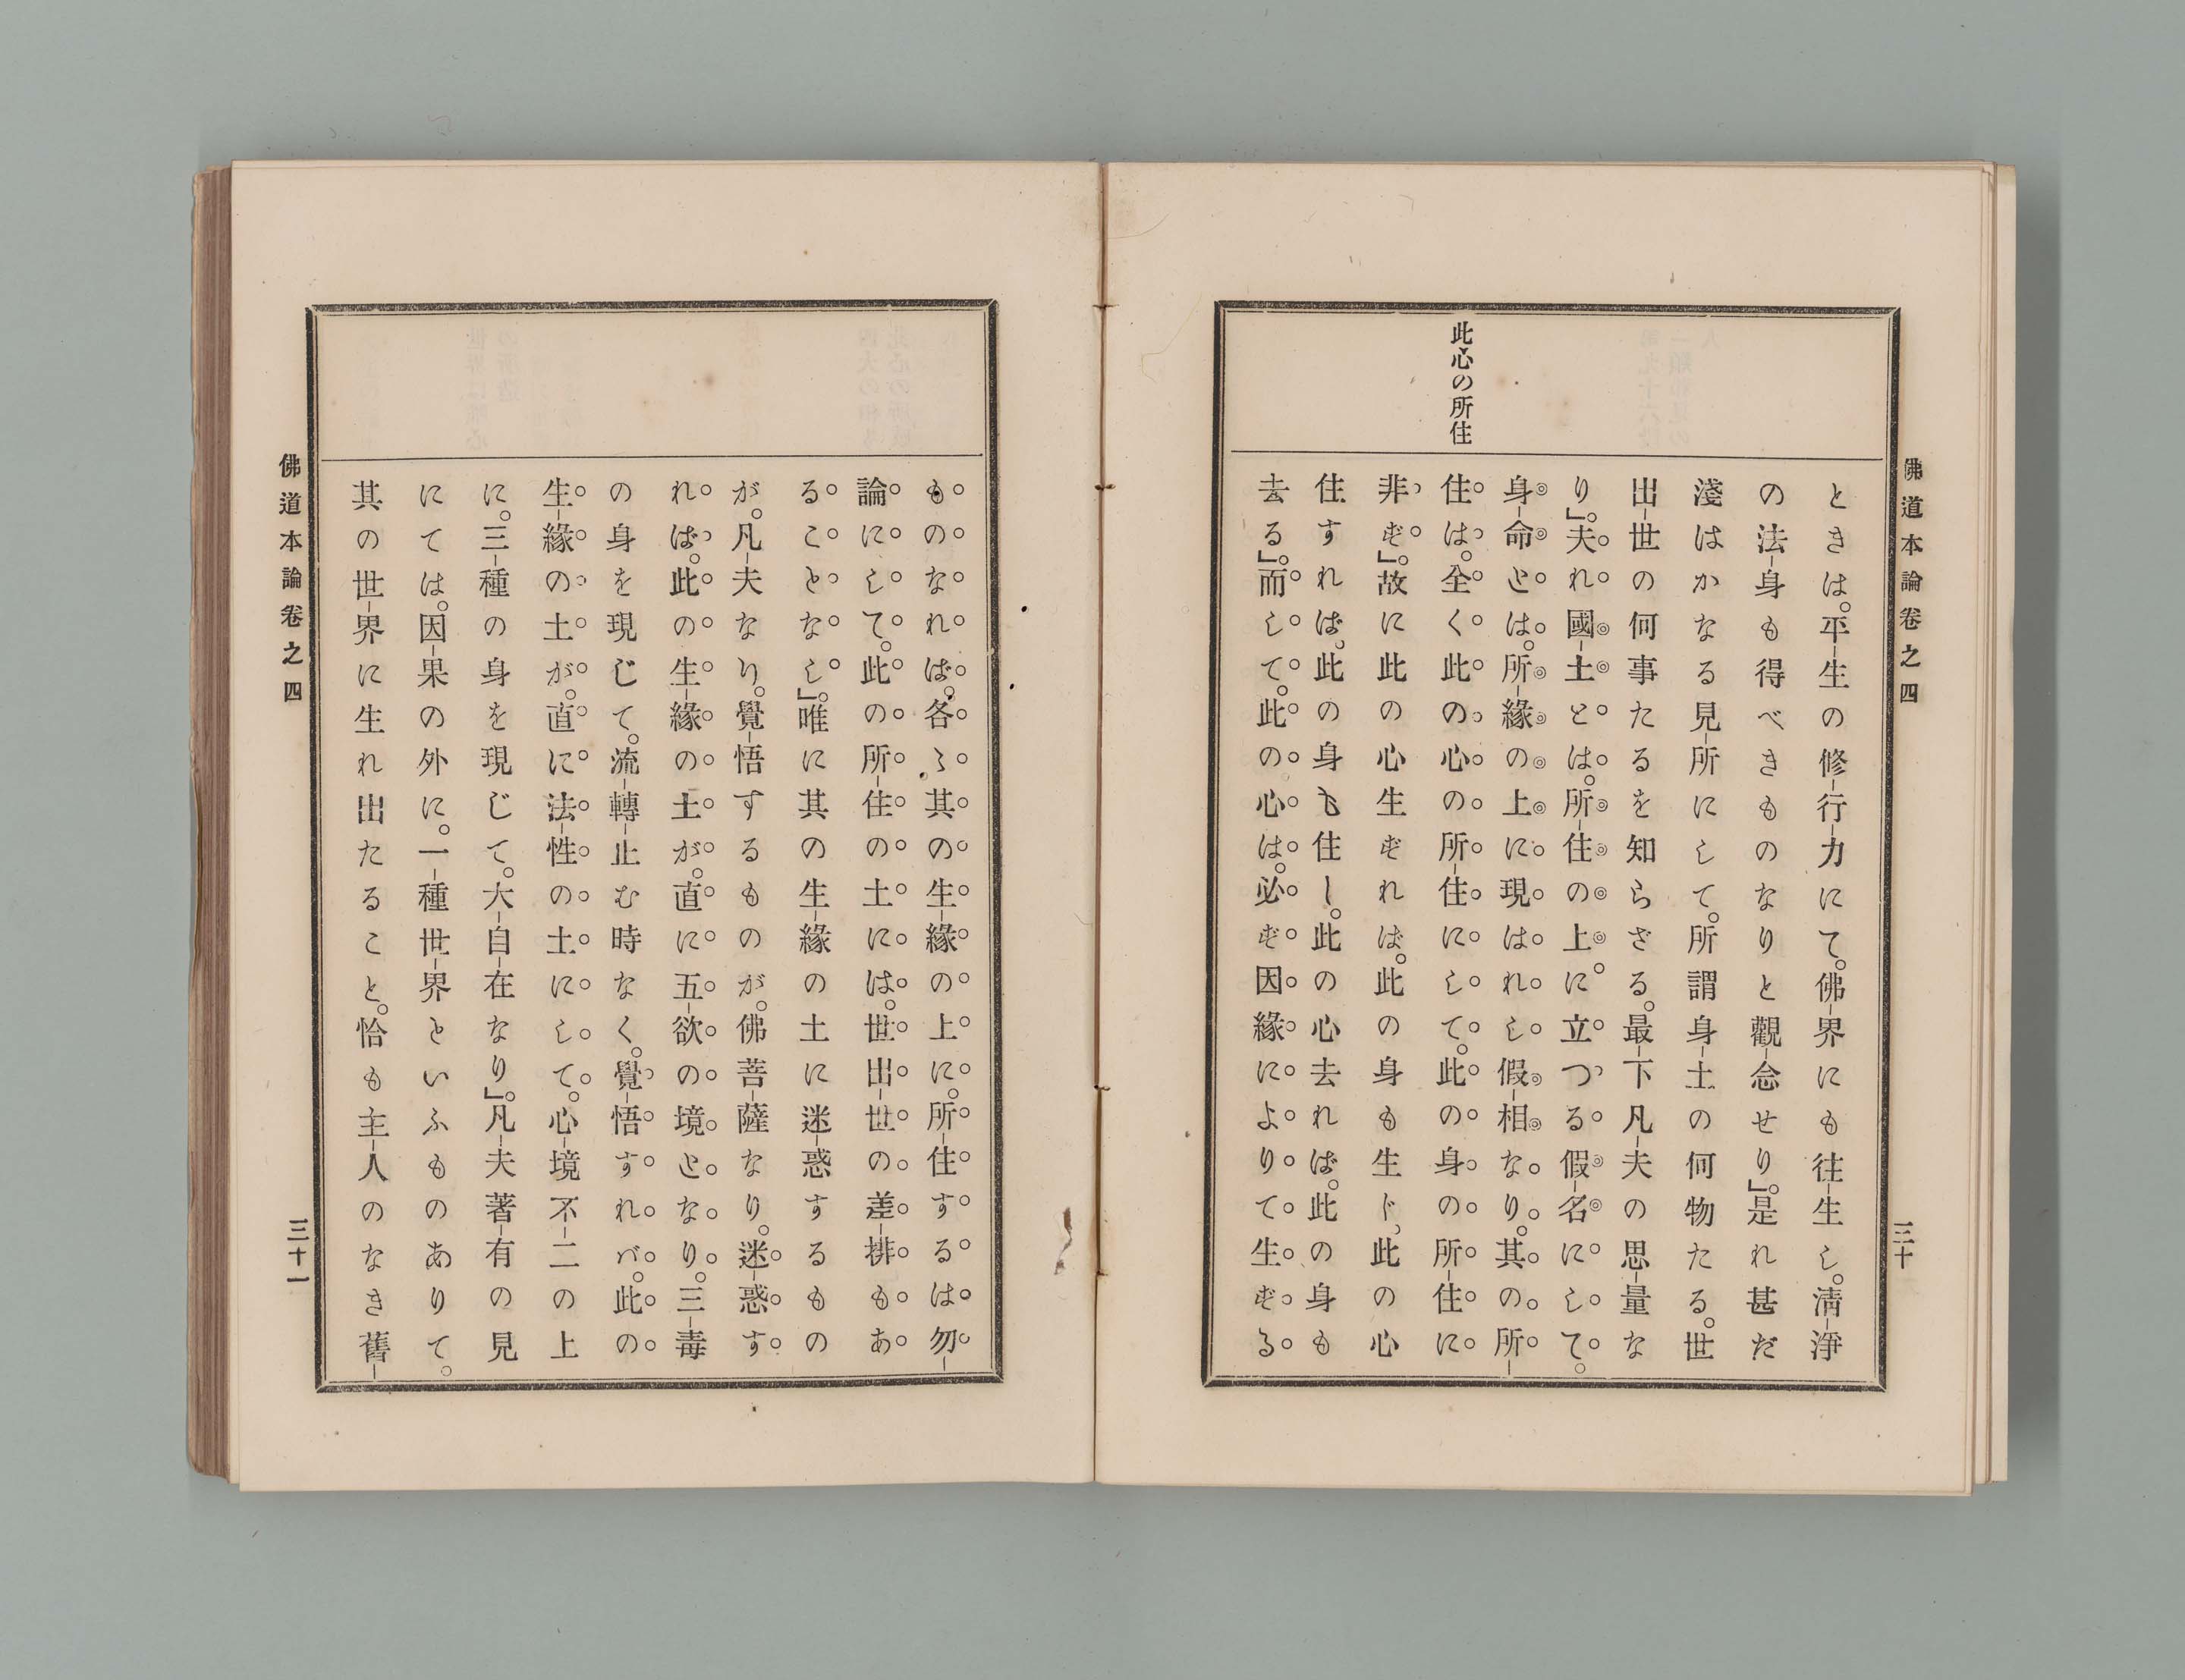 佛道本論卷之四
三十
此心の所住
ときは。平生の修行力にて。佛界にも往生し。淸淨
の法身も得べきものなりと觀念せり」。是れ甚だ
淺はかなる見所にして。所謂身土の何物たる。世
出世の何事たるを知らざる。最下凡夫の思量な
り」。夫れ國土とは。所住の上に立つる假名にして。
身命とは。所緣の上に現はれし假相なり。其の所
住は。全く此の心の所住にして。此の身の所住に
非ず」。故に此の心生ずれば。此の身も生じ、此の心
住すれば。此の身も住し。此の心去れば。此の身も
去る」。而して。此の心は。必ず因緣によりて生ずる
ものなれば。各〻其の生緣の上に。所住するは勿
論にして。此の所住の土には。世出世の差排もあ
ることなし」。唯に其の生緣の土に迷惑するもの
が。凡夫なり。覺悟するものが。佛菩薩なり。迷惑す
れば。此の生緣の土が。直に五欲の境となり。三毒
の身を現じて。流轉止む時なく。覺悟すれバ。此の
生緣の土が。直に法性の土にして。心境不二の上
に。三種の身を現じて。大自在なり」。凡夫著有の見
にては。因果の外に。一種世界といふものありて。
其の世界に生れ出たること。恰も主人のなき舊
佛道本論卷之四
三十一